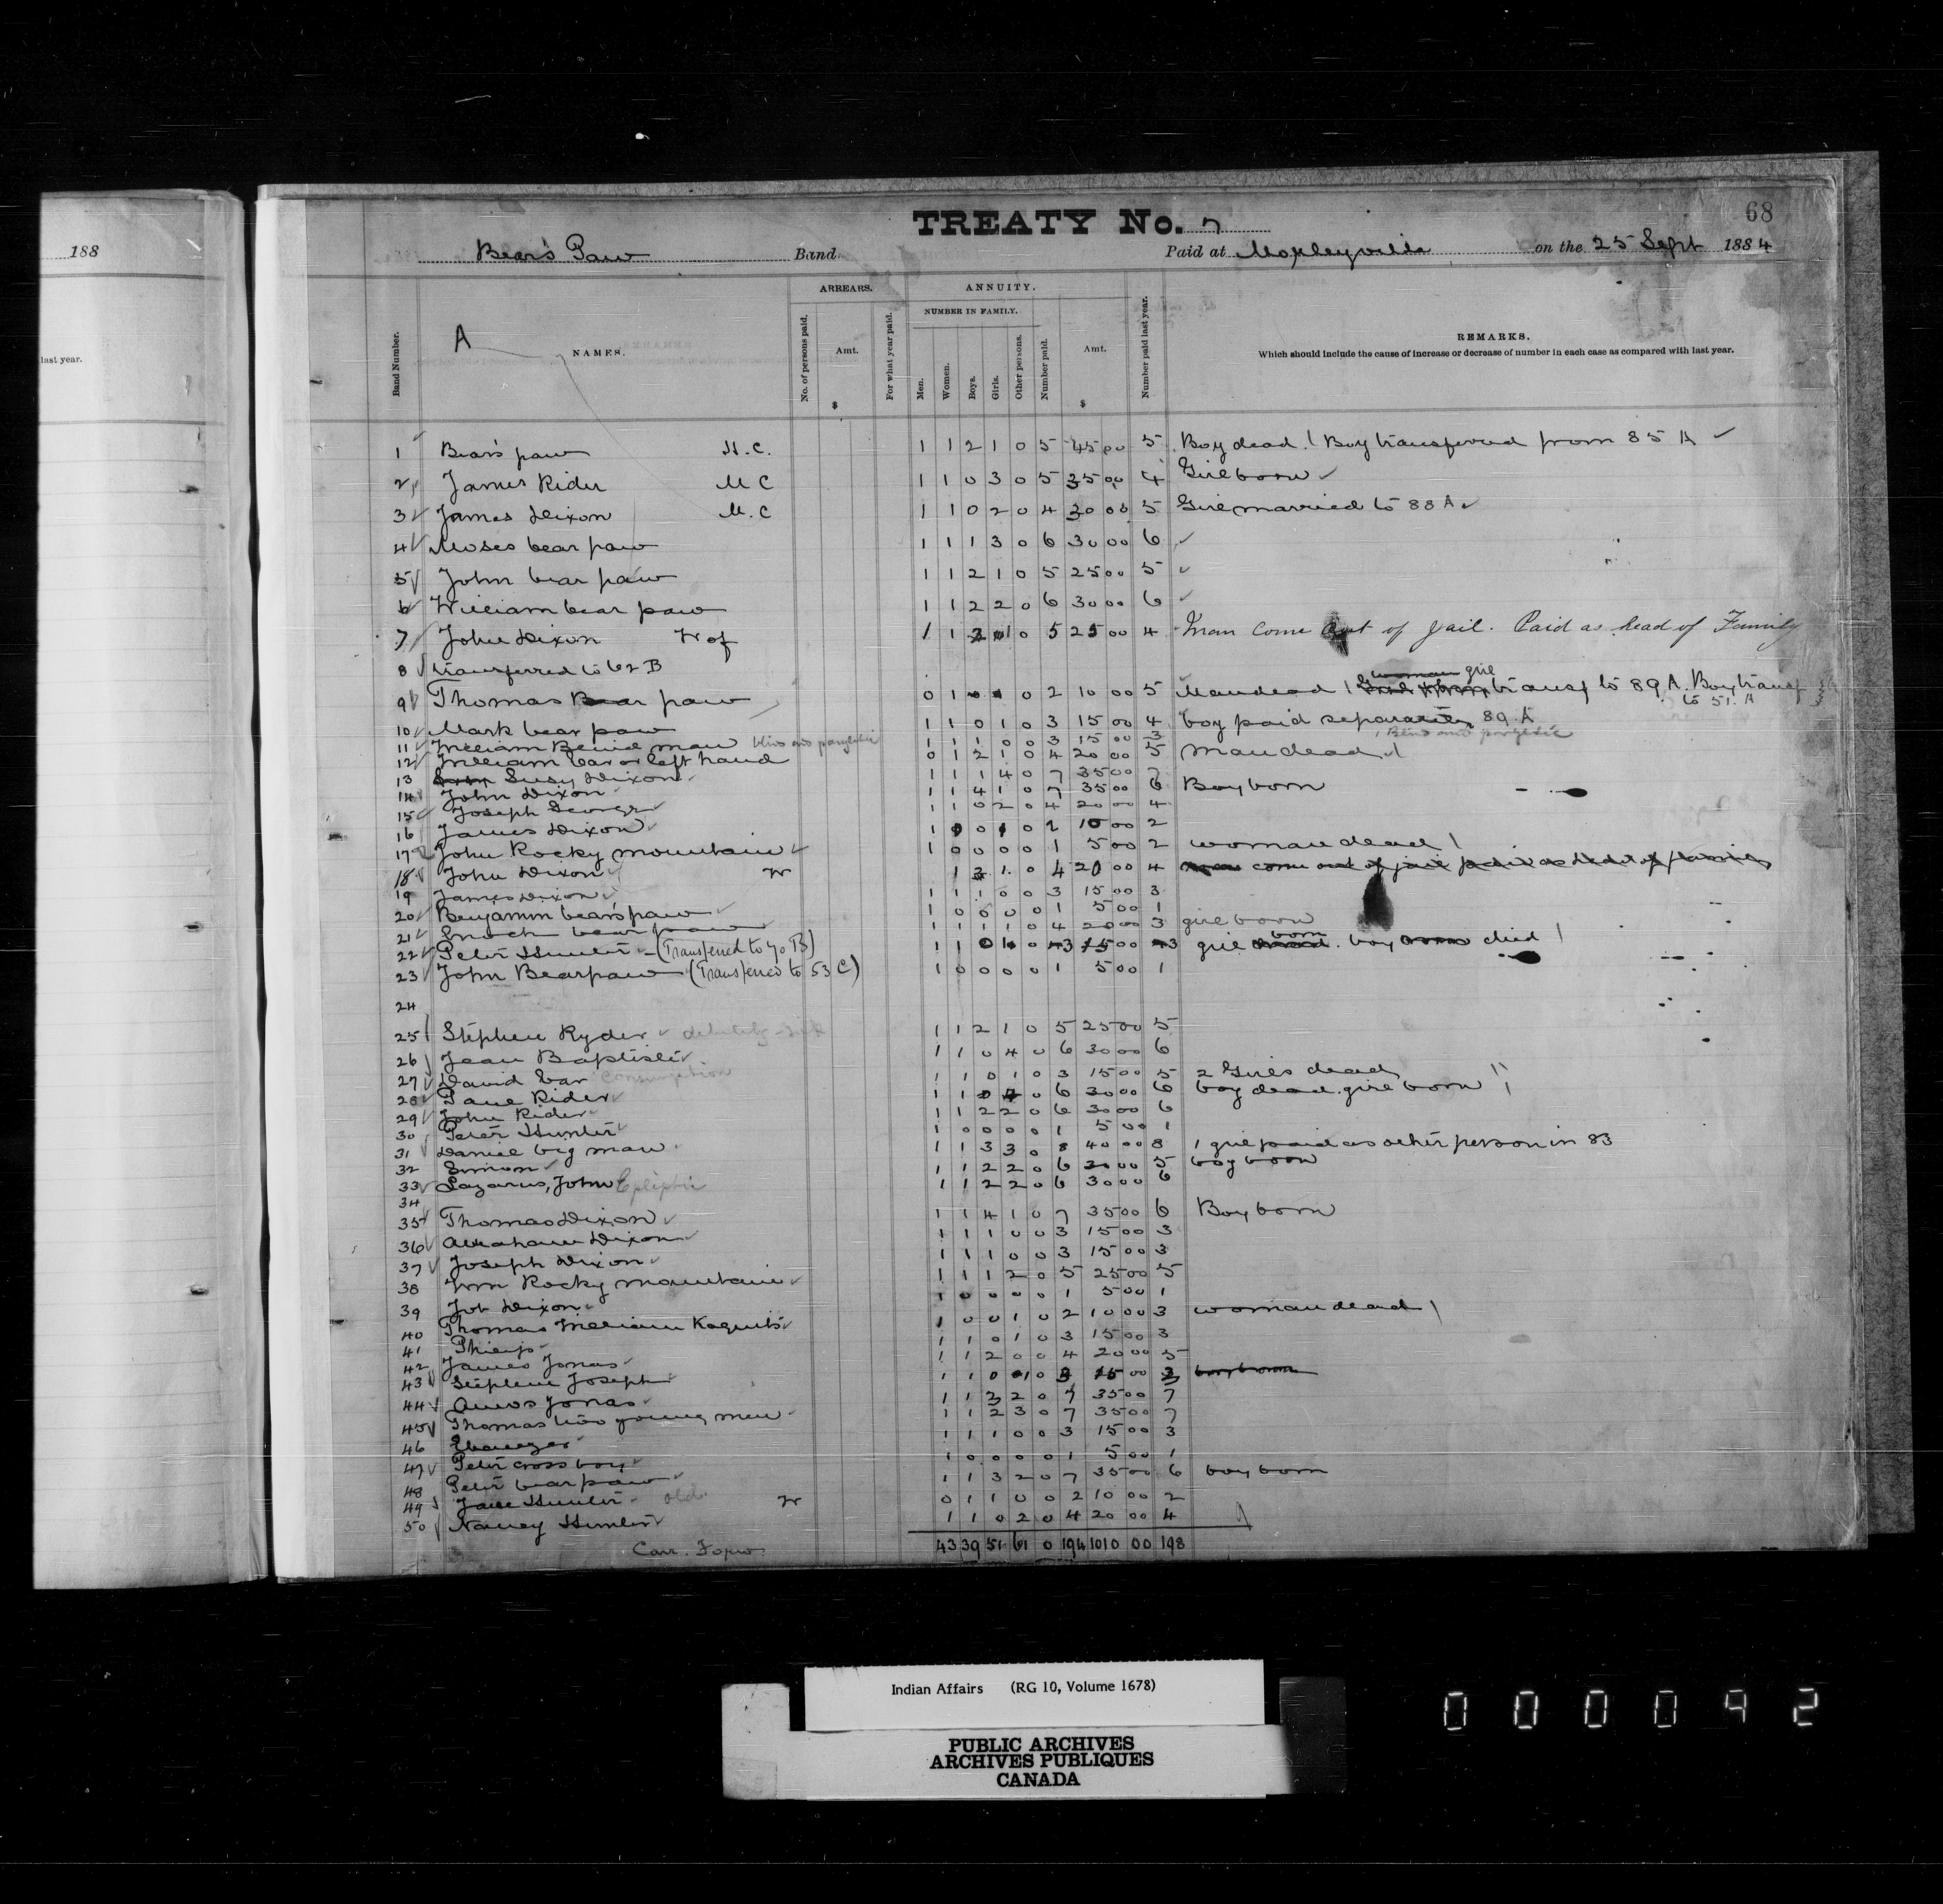 188
last year.
68
TREATY No. 7
Bear's Paw Band Paid at Morleyville on the 25 Sept 1884
A
Band Number.
NAMES.
ARREARS.
No. of persons paid.
Amt.
$
For what year paid.
ANNUITY.
NUMBER IN FAMILY.
Men.
Women.
Boys.
Girls.
Other persons.
Number paid.
Amt.
$
Number paid last year.
REMARKS.
Which should include the cause of increase or decrease of number in each case as compared with last year.
1 Bear's paw H.C. 1 1 2 1 0 5 45 00 5 Boy dead. 1 Boy transferred from 85 A
2 James Rider M C 1 1 0 3 0 5 35 00 4 Girl born
3 James Dixon M.C 1 1 0 2 0 4 30 00 5 Girl married to 88 A
4 Moses bear paw 1 1 1 3 0 6 30 00 6
5 John bear paw 1 1 2 1 0 5 25 00 5
6 William bear paw 1 1 2 2 0 6 30 00 6
7 John Dixon W of 1 1 2 1 0 5 25 00 4 Man come out of jail. Paid as head of Family
8 transferred to 62 B
9 Thomas Bear paw 0 1 0 1 0 2 10 00 5 Man dead 1 woman girl transf to 89 A. Boy transf to 51. A
10 Mark bear paw 1 1 0 1 0 3 15 00 4 boy paid separately 89 A
11 William Bend man blind and paryletic 1 1 1 0 0 3 15 00 3 Blind and paryletic
12 William Ear or left hand 0 1 2 1 0 4 20 00 5 man dead
13 Susy Dixon 1 1 1 4 0 7 35 00 7
14 John Dixon 1 1 4 1 0 7 35 00 6 Boy born
15 Joseph George 1 1 0 2 0 4 20 00 4
16 James Dixon 1 0 0 1 0 2 10 00 2
17 John Rocky mountain 1 0 0 0 0 1 5 00 2 woman dead
18 John Dixon W 1 2 1 0 4 20 00 4 man come out of jail paid as head of family
19 James Dixon 1 1 1 0 0 3 15 00 3
20 Benjamin bear's paw 1 0 0 0 0 1 5 00 1
21 Enoch bear paw 1 1 1 1 0 4 20 00 3 girl born
22 Peter Hunter (Transferred to 70 B) 1 1 0 1 0 3 15 00 3 girl born. boy died
23 John Bearpaw (Transferred to 53 C) 1 0 0 0 0 1 5 00 1
24
25 Stephen Ryder debility - sick 1 1 2 1 0 5 25 00 5
26 Jean Baptiste 1 1 0 4 0 6 30 00 6
27 David Ear Consumption 1 1 0 1 0 3 15 00 5 2 Girls dead
28 Paul Rider 1 1 0 4 0 6 30 00 6 boy dead. girl born
29 John Rider 1 1 2 2 0 6 30 00 6
30 Peter Hunter 1 0 0 0 0 1 5 00 1
31 Daniel big man 1 1 3 3 0 8 40 00 8 1 girl paid as other person in 83
32 Simon 1 1 2 2 0 6 30 00 5 boy born
33 Lazarus, John Epileptic 1 1 2 2 0 6 30 00 6
34
35 Thomas Dixon 1 1 4 1 0 7 35 00 6 Boy born
36 Abraham Dixon 1 1 1 0 0 3 15 00 3
37 Joseph Dixon 1 1 1 0 0 3 15 00 3
38 Wm Rocky mountain 1 1 1 2 0 5 25 00 5
39 Job Dixon 1 0 0 0 0 1 5 00 1
40 Thomas William 1 0 0 1 0 2 10 00 3 woman dead
41 Philip 1 1 0 1 0 3 15 00 3
42 James Jonas 1 1 2 0 0 4 20 00 5
43 Stephen Joseph 1 1 0 1 0 3 15 00 3 boy born
44 Amos Jonas 1 1 3 2 0 7 35 00 7
45 Thomas two young men 1 1 2 3 0 7 35 00 7
46 Ebenezer 1 1 1 0 0 3 15 00 3
47 Peter cross boy 1 0 0 0 0 1 5 00 1
48 Peter bear paw 1 1 3 2 0 7 35 00 6 boy born
49 Jane Hunter old W 0 1 1 0 0 2 10 00 2
50 Nancy Hunter 1 1 0 2 0 4 20 00 4
Carr. Forw. 43 39 51 61 0 194 1010 00 198
Indian Affairs (RG 10, Volume 1678)
PUBLIC ARCHIVES
ARCHIVES PUBLIQUES
CANADA
000092